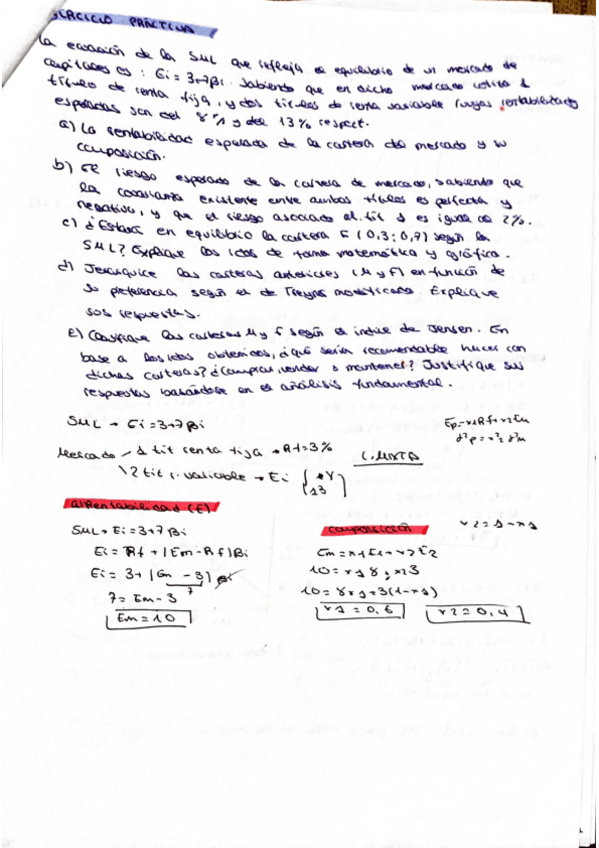 EJERCICIO PRÁCTICO
La ecuación de la SML que refleja el equilibrio de un mercado de
capitales es: Ei = 3+7βi. Sabiendo que en dicho mercado cotiza 1
título de renta fija, y dos títulos de renta variable cuyas rentabilidades
esperadas son del 8% y del 13% respect.
a) La rentabilidad esperada de la cartera del mercado y su
composición.
b) El riesgo esperado de la cartera de mercado, sabiendo que
la covarianza existente entre ambos títulos es perfecta y
negativa, y que el riesgo asociado al tit 1 es igual al 2%.
c) ¿Estará en equilibrio la cartera F (0,3; 0,7) según la
SML? Explique los rdos de forma matemática y gráfica.
d) Jerarquice las carteras anteriores (M y F) en función de
su preferencia según el de Treynor modificado. Explique
sus respuestas.
E) Clasifique las carteras M y F según el índice de Jensen. En
base a los rdos obtenidos, ¿qué sería recomendable hacer con
dichas carteras? ¿comprar, vender o mantener? Justifique sus
respuestas basándose en el análisis fundamental.
SML → Ei = 3+7βi
Ep = x1Rf + x2Em
σ²p = x²2 σ²m
Mercado - 1 tit renta fija → Rf = 3%
C. MIXTA
2 tit r. variable → Ei { 8
13
a) Rentabilidad (E)
SML → Ei = 3+7βi
Ei = Rf + (Em - Rf)βi
Ei = 3 + (Em - 3) βi
7
7 = Em - 3
Em = 10
composición
x2 = 1 - x1
Em = x1E1 + x2E2
10 = x1 8 + x2 13
10 = 8x1 + 13(1-x1)
x1 = 0,6
x2 = 0,4